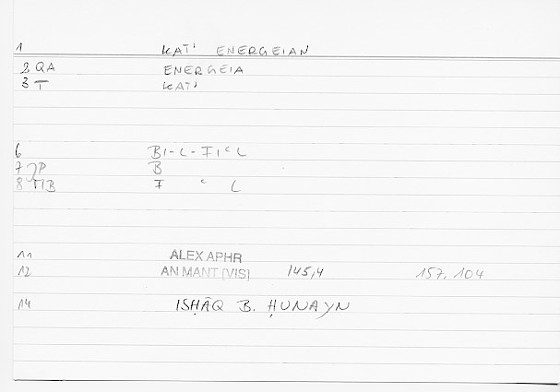 1 KAT' ENERGEIAN
2 QA ENERGEIA
3 T KAT'
6 BI-L-FIᶜL
7 JP B
8 TIB F ᶜ L
11 ALEX APHR
12 AN MANT [VIS] 145,4 157,104
14 ISḤĀQ B. ḤUNAYN